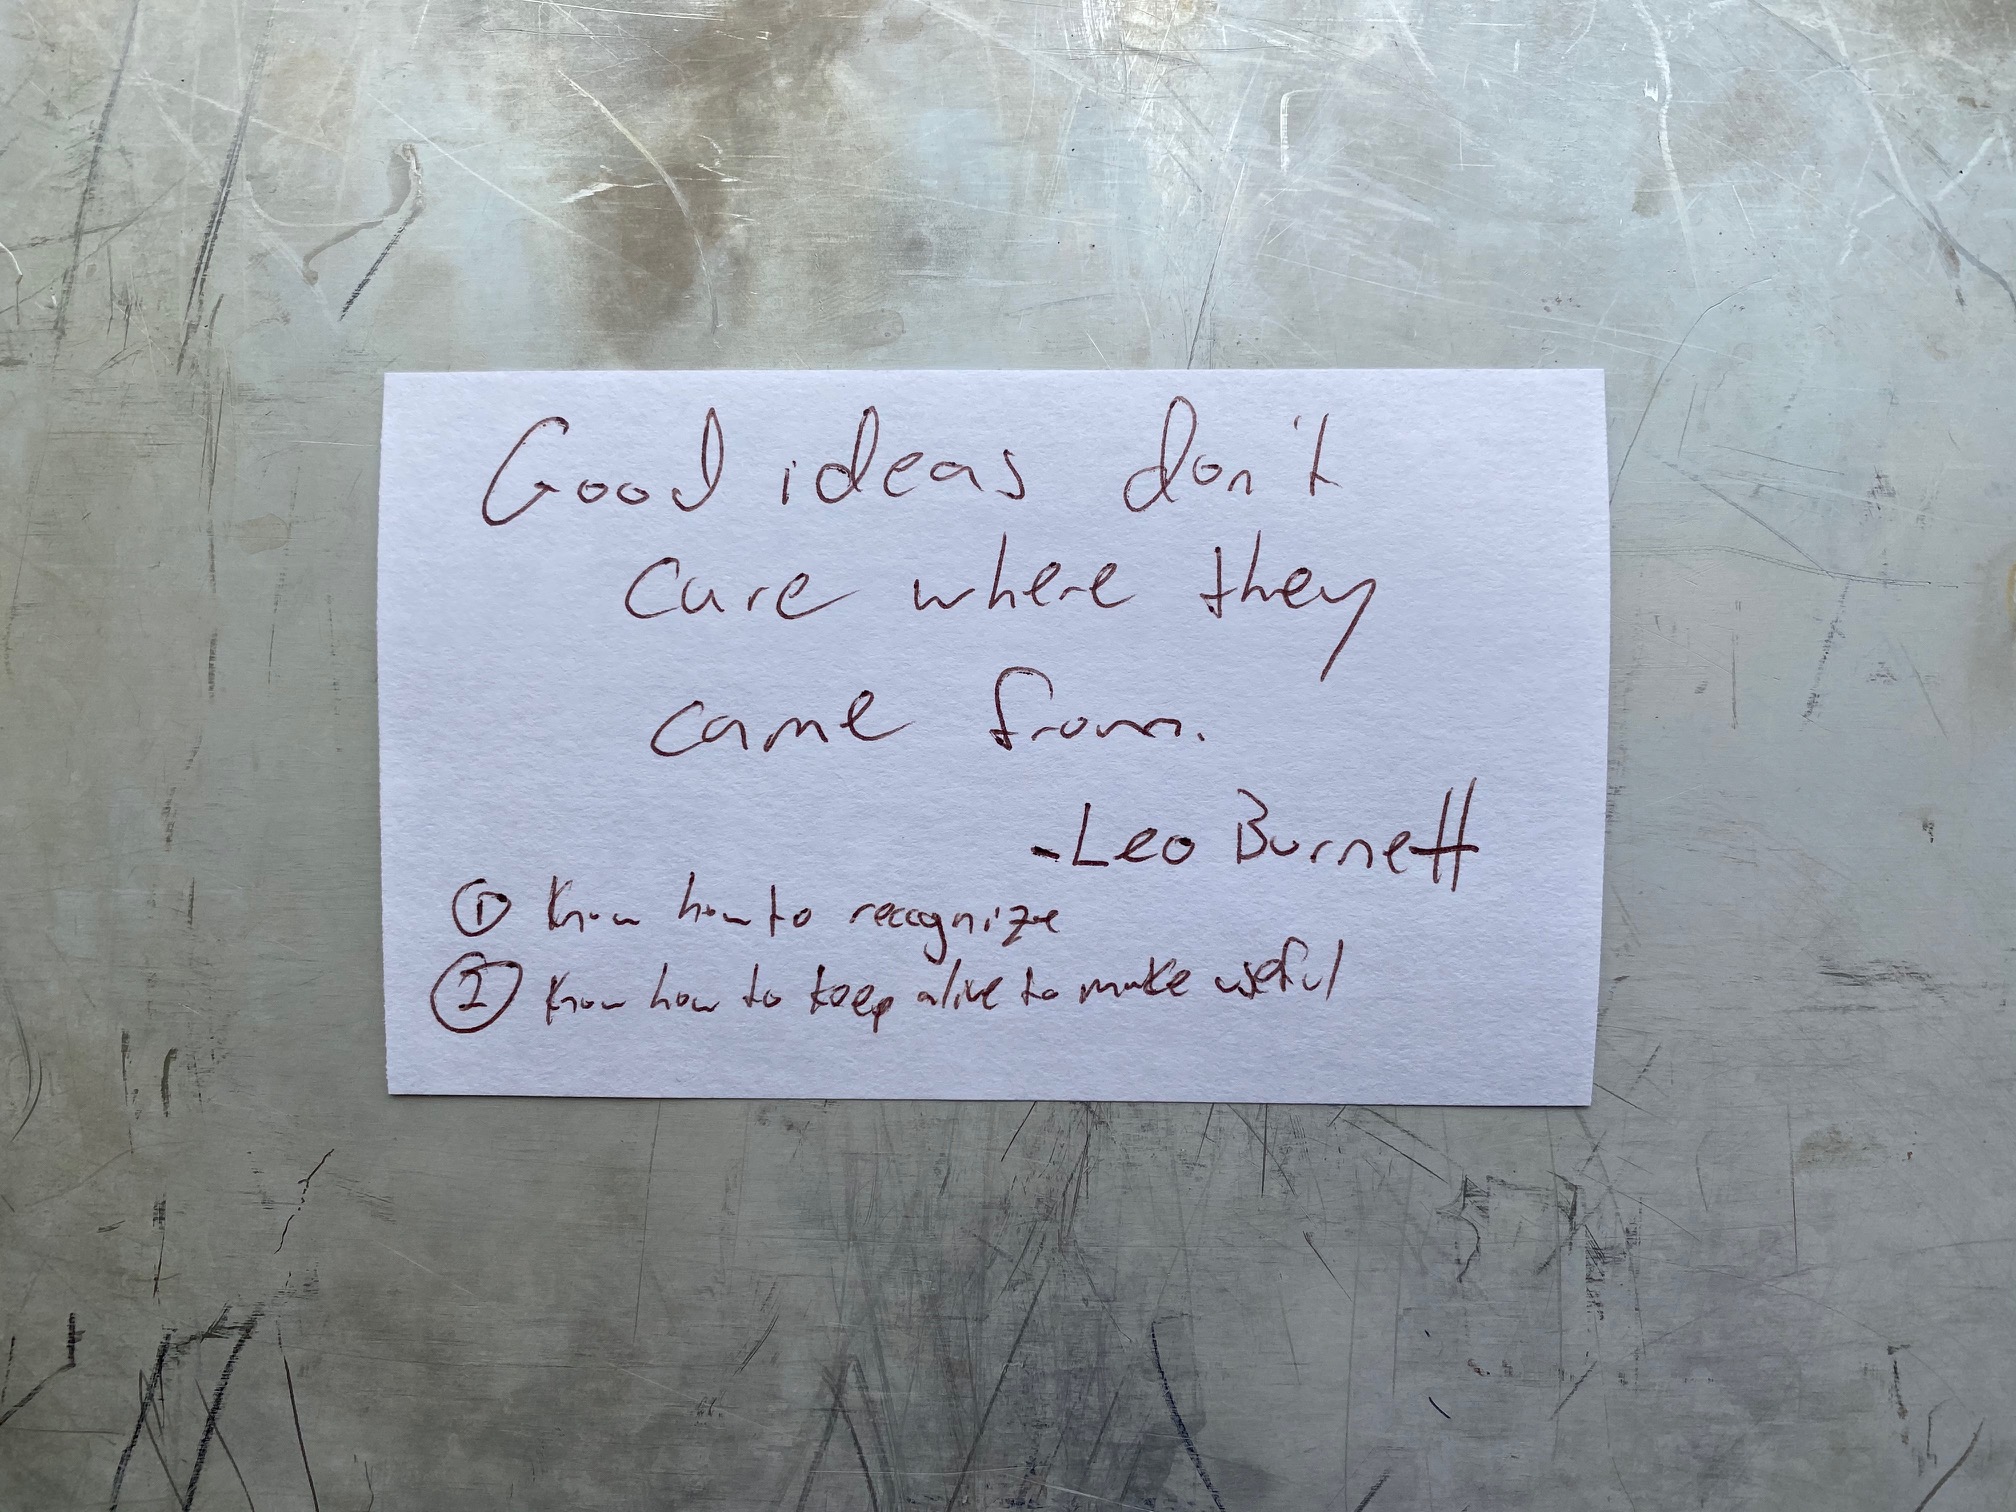 Good ideas don't
care where they
came from.
-Leo Burnett
① Know how to recognize
② Know how to keep alive to make useful